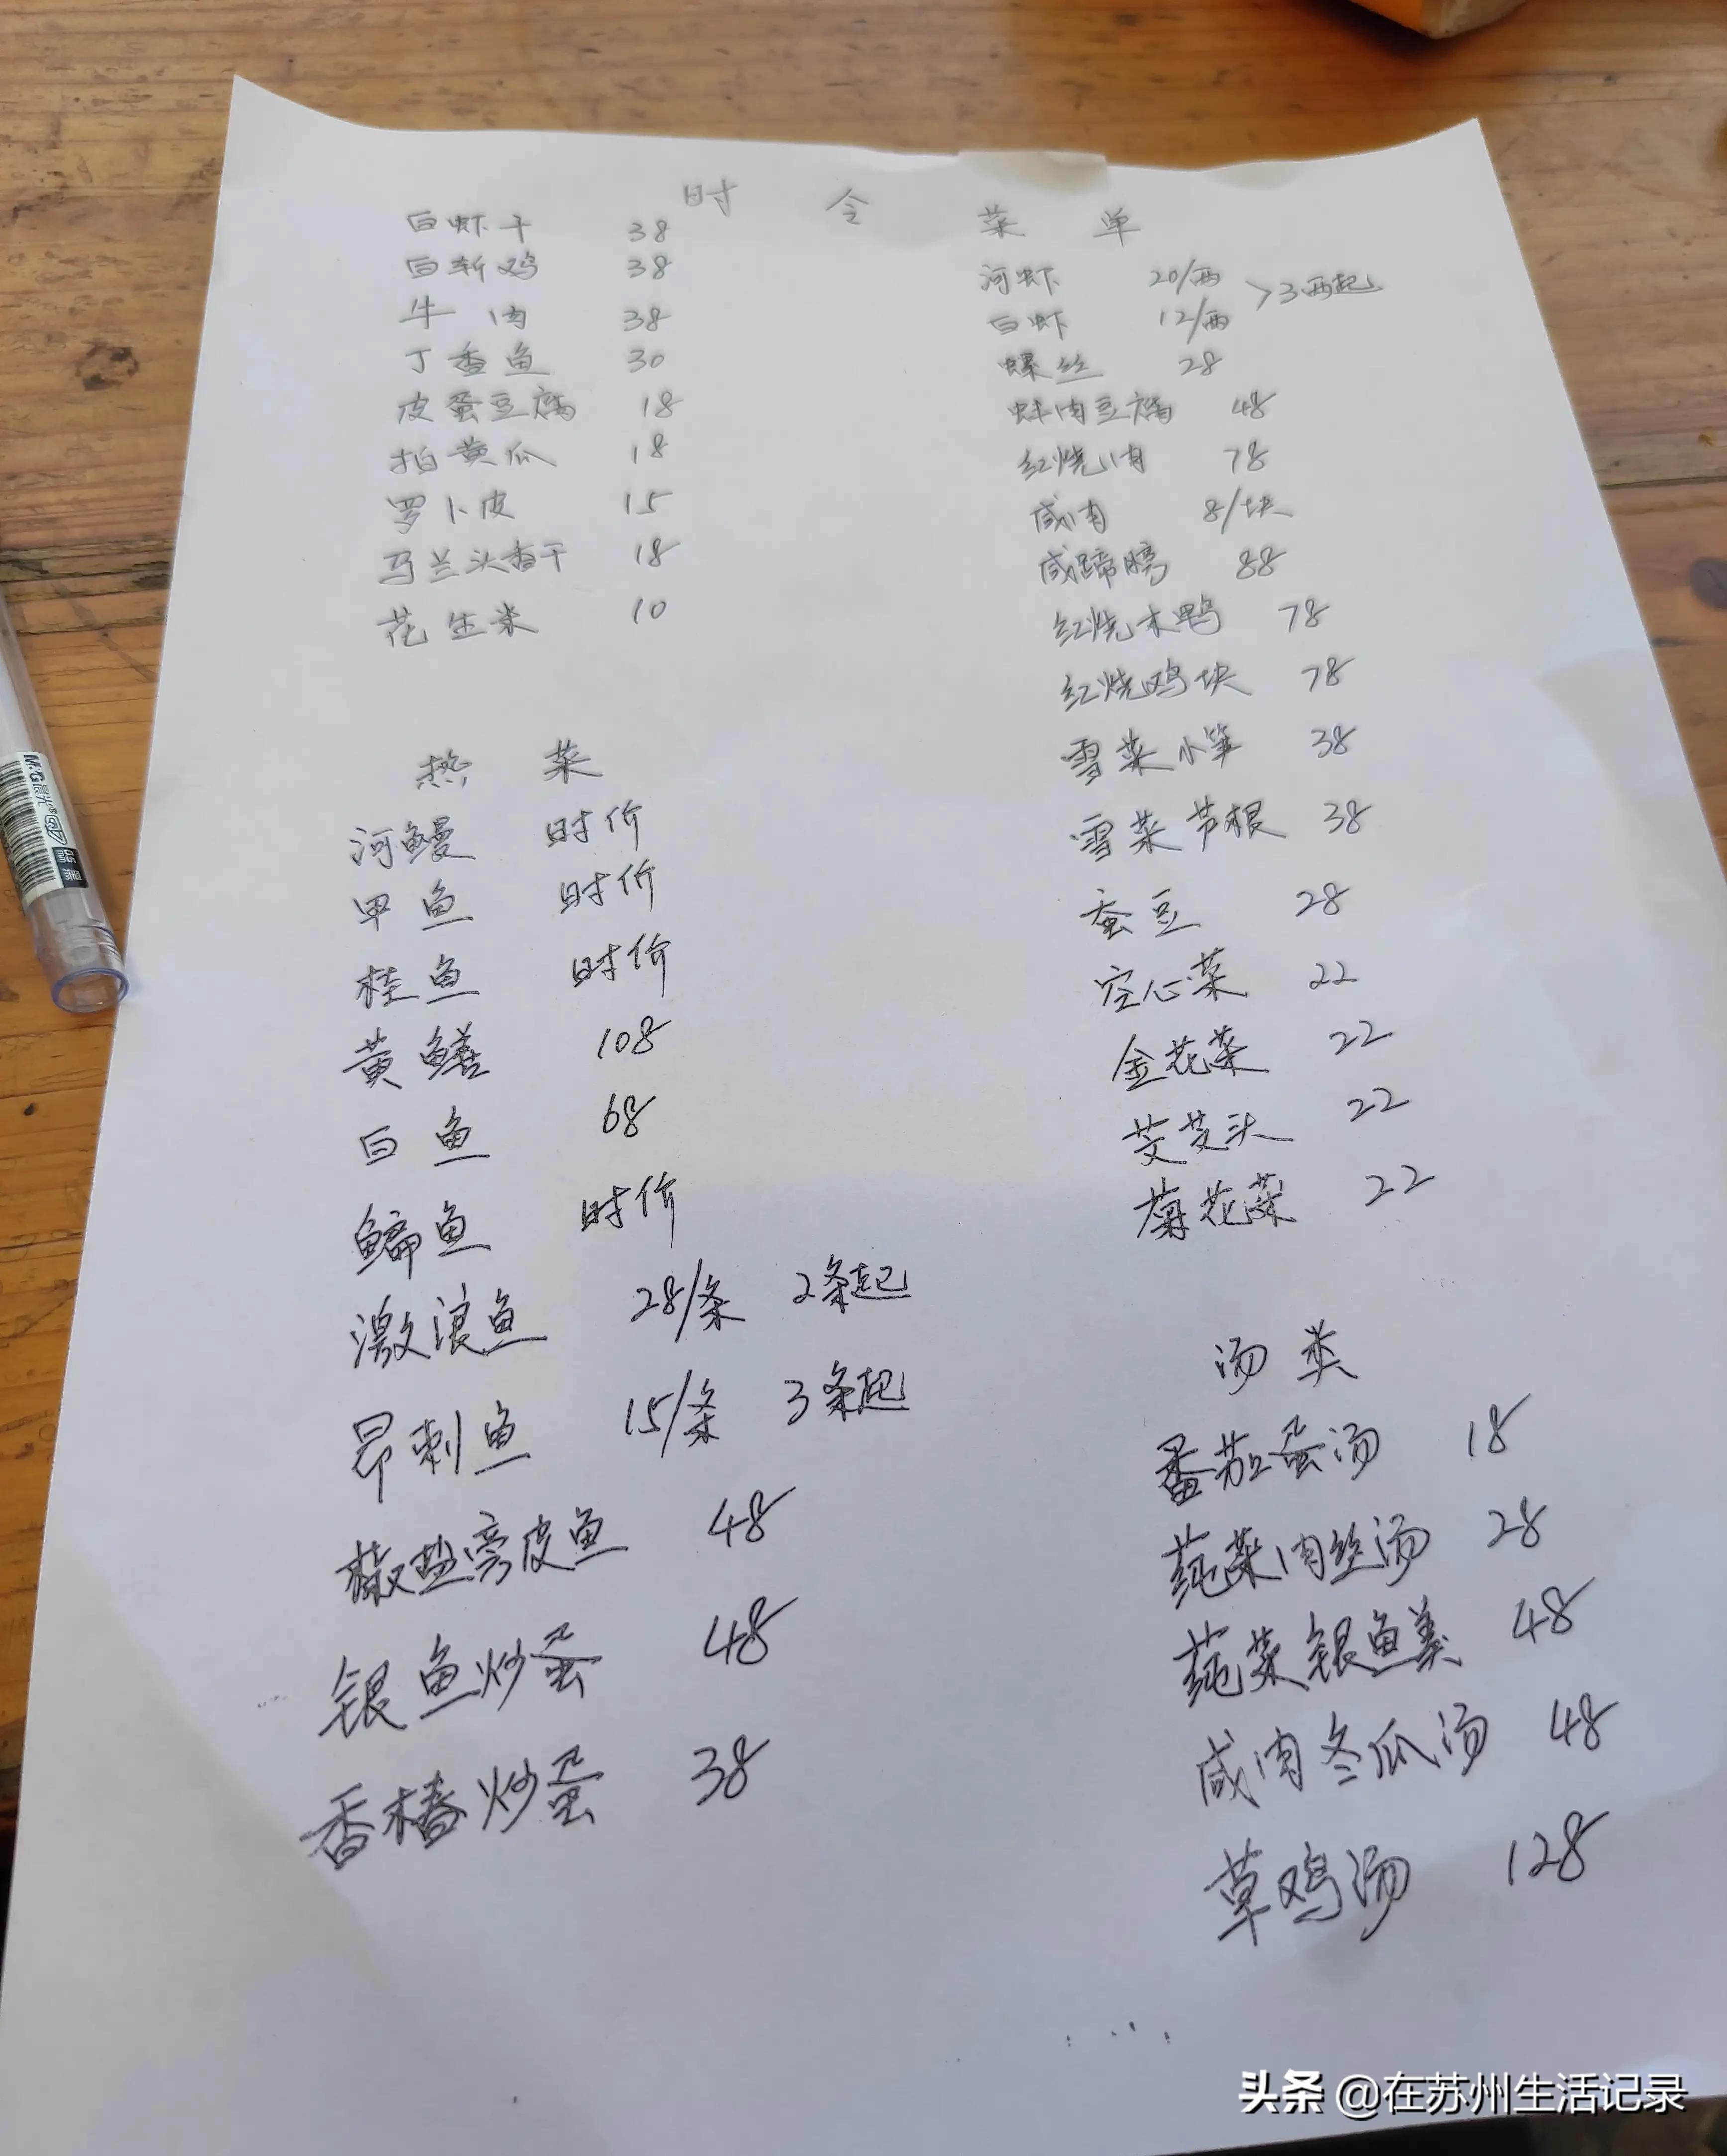 时令菜单
白虾干 38
白斩鸡 38
牛肉 38
丁香鱼 30
皮蛋豆腐 18
拍黄瓜 18
罗卜皮 15
马兰头香干 18
花生米 10
热菜
河鳗 时价
甲鱼 时价
桂鱼 时价
黄鳝 108
白鱼 68
鳊鱼 时价
激浪鱼 28/条 2条起
昂刺鱼 15/条 3条起
椒盐旁皮鱼 48
银鱼炒蛋 48
香椿炒蛋 38
河虾 20/两
白虾 12/两 >3两起
螺丝 28
蚌肉豆腐 48
红烧肉 78
咸肉 8/块
咸蹄膀 88
红烧木鸭 78
红烧鸡块 78
雪菜小笋 38
雪菜芦根 38
蚕豆 28
空心菜 22
金花菜 22
芰芰头 22
菊花菜 22
汤类
番茄蛋汤 18
莼菜肉丝汤 28
莼菜银鱼羹 48
咸肉冬瓜汤 48
草鸡汤 128
M&G晨光
0.5 黑
头条 @在苏州生活记录